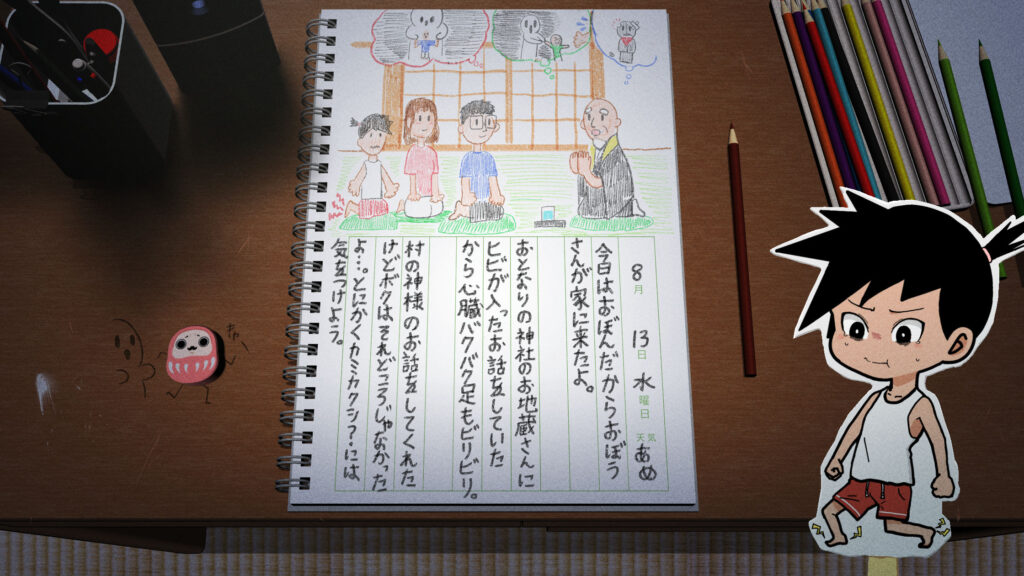 8月13日水曜日天気あめ
今日はおぼんだからおぼう
さんが家に来たよ。
おとなりの神社のお地蔵さんに
ヒビが入ったお話をしていた
から心臓バクバク足もビリビリ。
村の神様のお話をしてくれた
けどボクはそれどころじゃなかった
よ…。とにかくカミカクシ?には
気をつけよう。